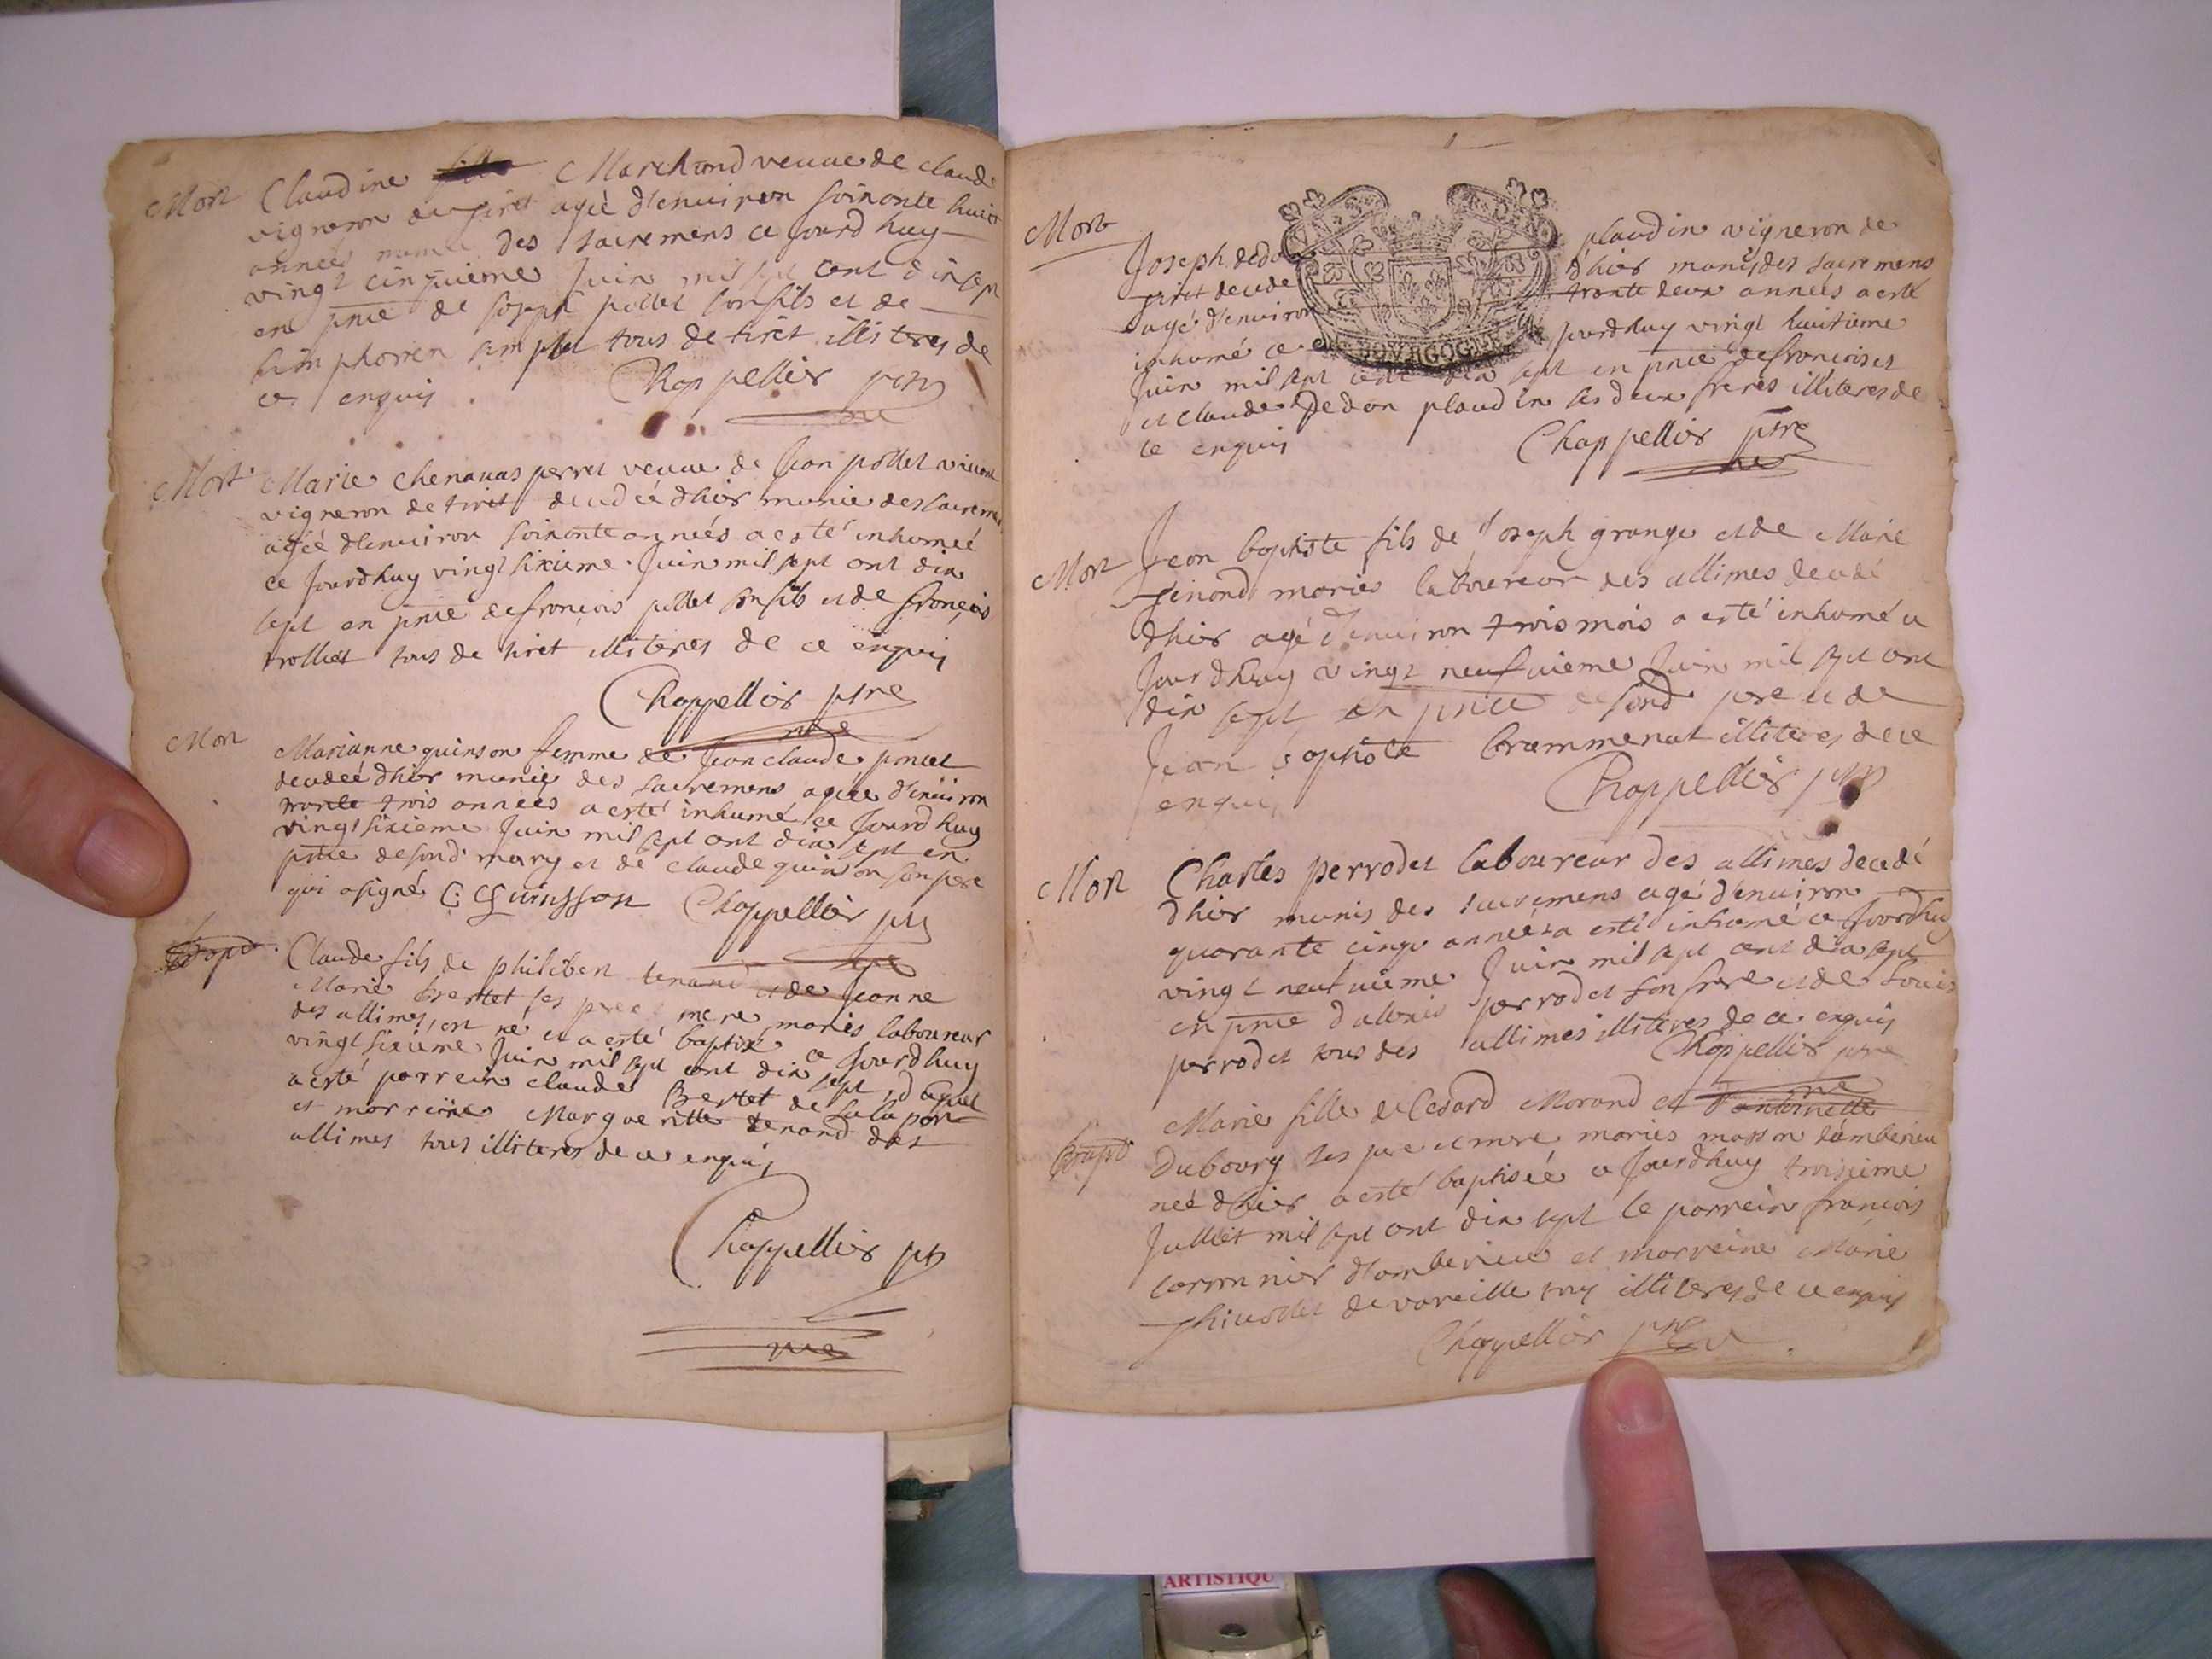 Mort
Claudine Marchand veuve de claude
vigneron de tiret ageé d'enuiron soixante huict
anneés munie des sacremens ce jourdhuy
vingt cinquieme Juin mil sept cent dix sept
en pnce de joseph pollet son fils et de
simphorien tous de tiret illiteres de
ce enquis
Chappellier ptre
Mort
Marie chenauas perret veuue de Jean pollet viuant
vigneron de tiret decedeé dhier munie des sacremens
ageé d'enuiron soixante anneés a esté inhumeé
ce Jourdhuy vingt sixieme Juin mil sept cent dix
sept en pnce de francois pollet son fils et de françois
trolliet tous de tiret illiteres de ce enquis
Chappellier ptre
Mort
Marianne quinson femme de Jean claude poncet
decedeé dhier munie des sacremens ageé d'enuiron
trante trois anneés a esté inhumé ce Jourdhuy
vingt sixieme Juin mil sept cent dix sept en
pnce de sond mary et de claude quinson son pere
qui a signé C: Quinsson Chappellier ptre
Bapt
Claude fils de philibert tenand et de Jeanne
Marie bertet ses pere mere mariés laboureur
des allimes, est né et a esté baptisé ce Jourdhuy
vingt sixieme Juin mil sept cent dix sept, duquel
a esté parrein claude Bertet de
et marreine Margueritte tenand des
allimes tous illiteres de ce enquis
Chappellier ptre
Mort
Joseph dedon plaudin vigneron de
tiret decedé d'hier munis des sacremens
agé d'enuiron trante deux anneés a esté
inhumé ce jourdhuy vingt huitieme
BOVRGOGNE
Juin mil sept cent dix sept en pnce de francois et
et claude Dedon plaudin ses deux freres illiteres de
ce enquis Chappellier ptre
Mort
Jean baptiste fils de Joseph grange et de Marie
tenand mariés laboureur des allimes decedé
dhier agé d'enuiron trois mois a esté inhumé ce
Jourdhuy vingt neufuieme Juin mil sept cent
dix sept en pnce de sond pere et de
Jean baptiste brammerat illiteres de ce
enquis Chappellier ptre
Mort
Charles perrodet laboureur des allimes decedé
dhier munis des sacremens agé d'enuiron
quarante cinq anneés a esté inhumé ce Jourdhuy
vingt neufuieme Juin mil sept cent dix sept
en pnce perrodet son frere et de Louis
perrodet tous des allimes illiteres de ce enquis
Chappellier ptre
Bapt
Marie fille de Cedard Morand et d'antoinette
Dubourg ses pere et mere mariés masson d'amberieu
neé dhier a esté baptiseé ce Jourdhuy troisieme
Julliet mil sept cent dix sept le parrein francois
d'amberieu et marreine Marie
de vareille tous illiteres de ce enquis
Chappellier ptre
ARTISTIQU